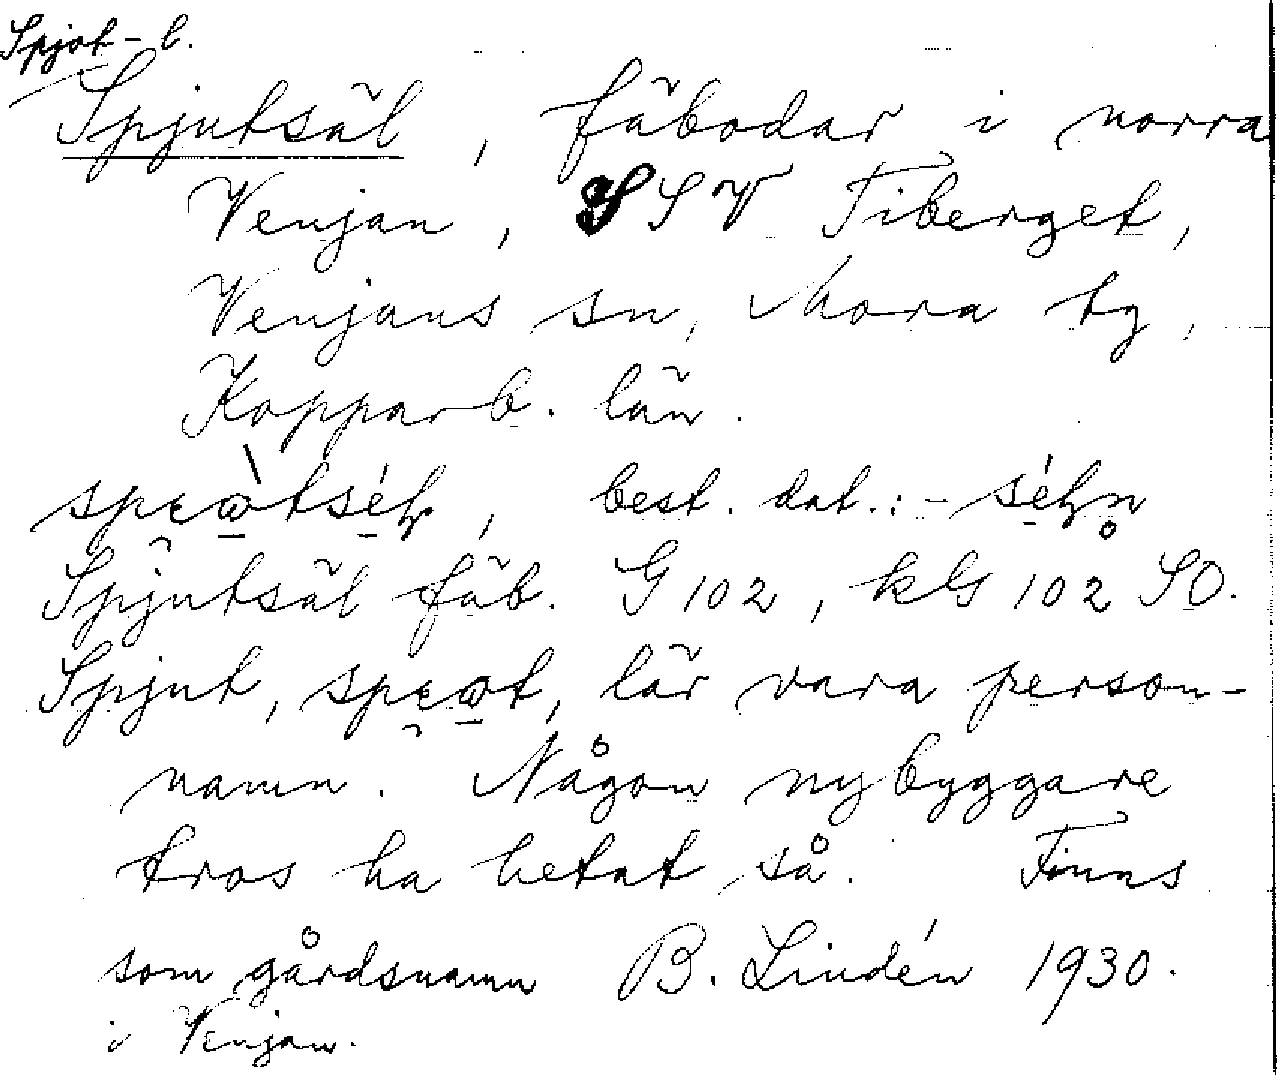 Spjot - b.
Spjutsäl, fäbodar i norra
Venjan, SSV Tiberget,
Venjans sn, Mora tg,
Kopparb. län.
best. dat.: -
Spjutsäl fäb. G 102, kls 102 SO.
Spjut, lär vara person-
namn. Någon nybyggare
tros ha hetat så. Finns
som gårdsnamn B. Lindén 1930.
i Venjan.